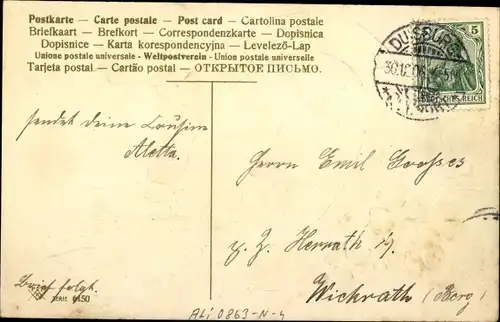 Postkarte — Carte postale — Post card — Cartolina postale
Briefkaart — Brefkort — Correspondenzkarte — Dopisnica
Dopisnice — Karta korespondencyjna — Levelező-Lap
Unione postale universale - Weltpostverein - Union postale universelle
Tarjeta postal — Cartão postal — ОТКРЫТОЕ ПИСЬМО.
5
DUISBURG
DEUTSCHES REICH
sendet deine Cousine
Aletta.
Herrn Emil Grosses
z. Z. Herrath b/
Wickrath (Berg)
Brief folgt.
SERIE 6150
ALi 0863-N-4